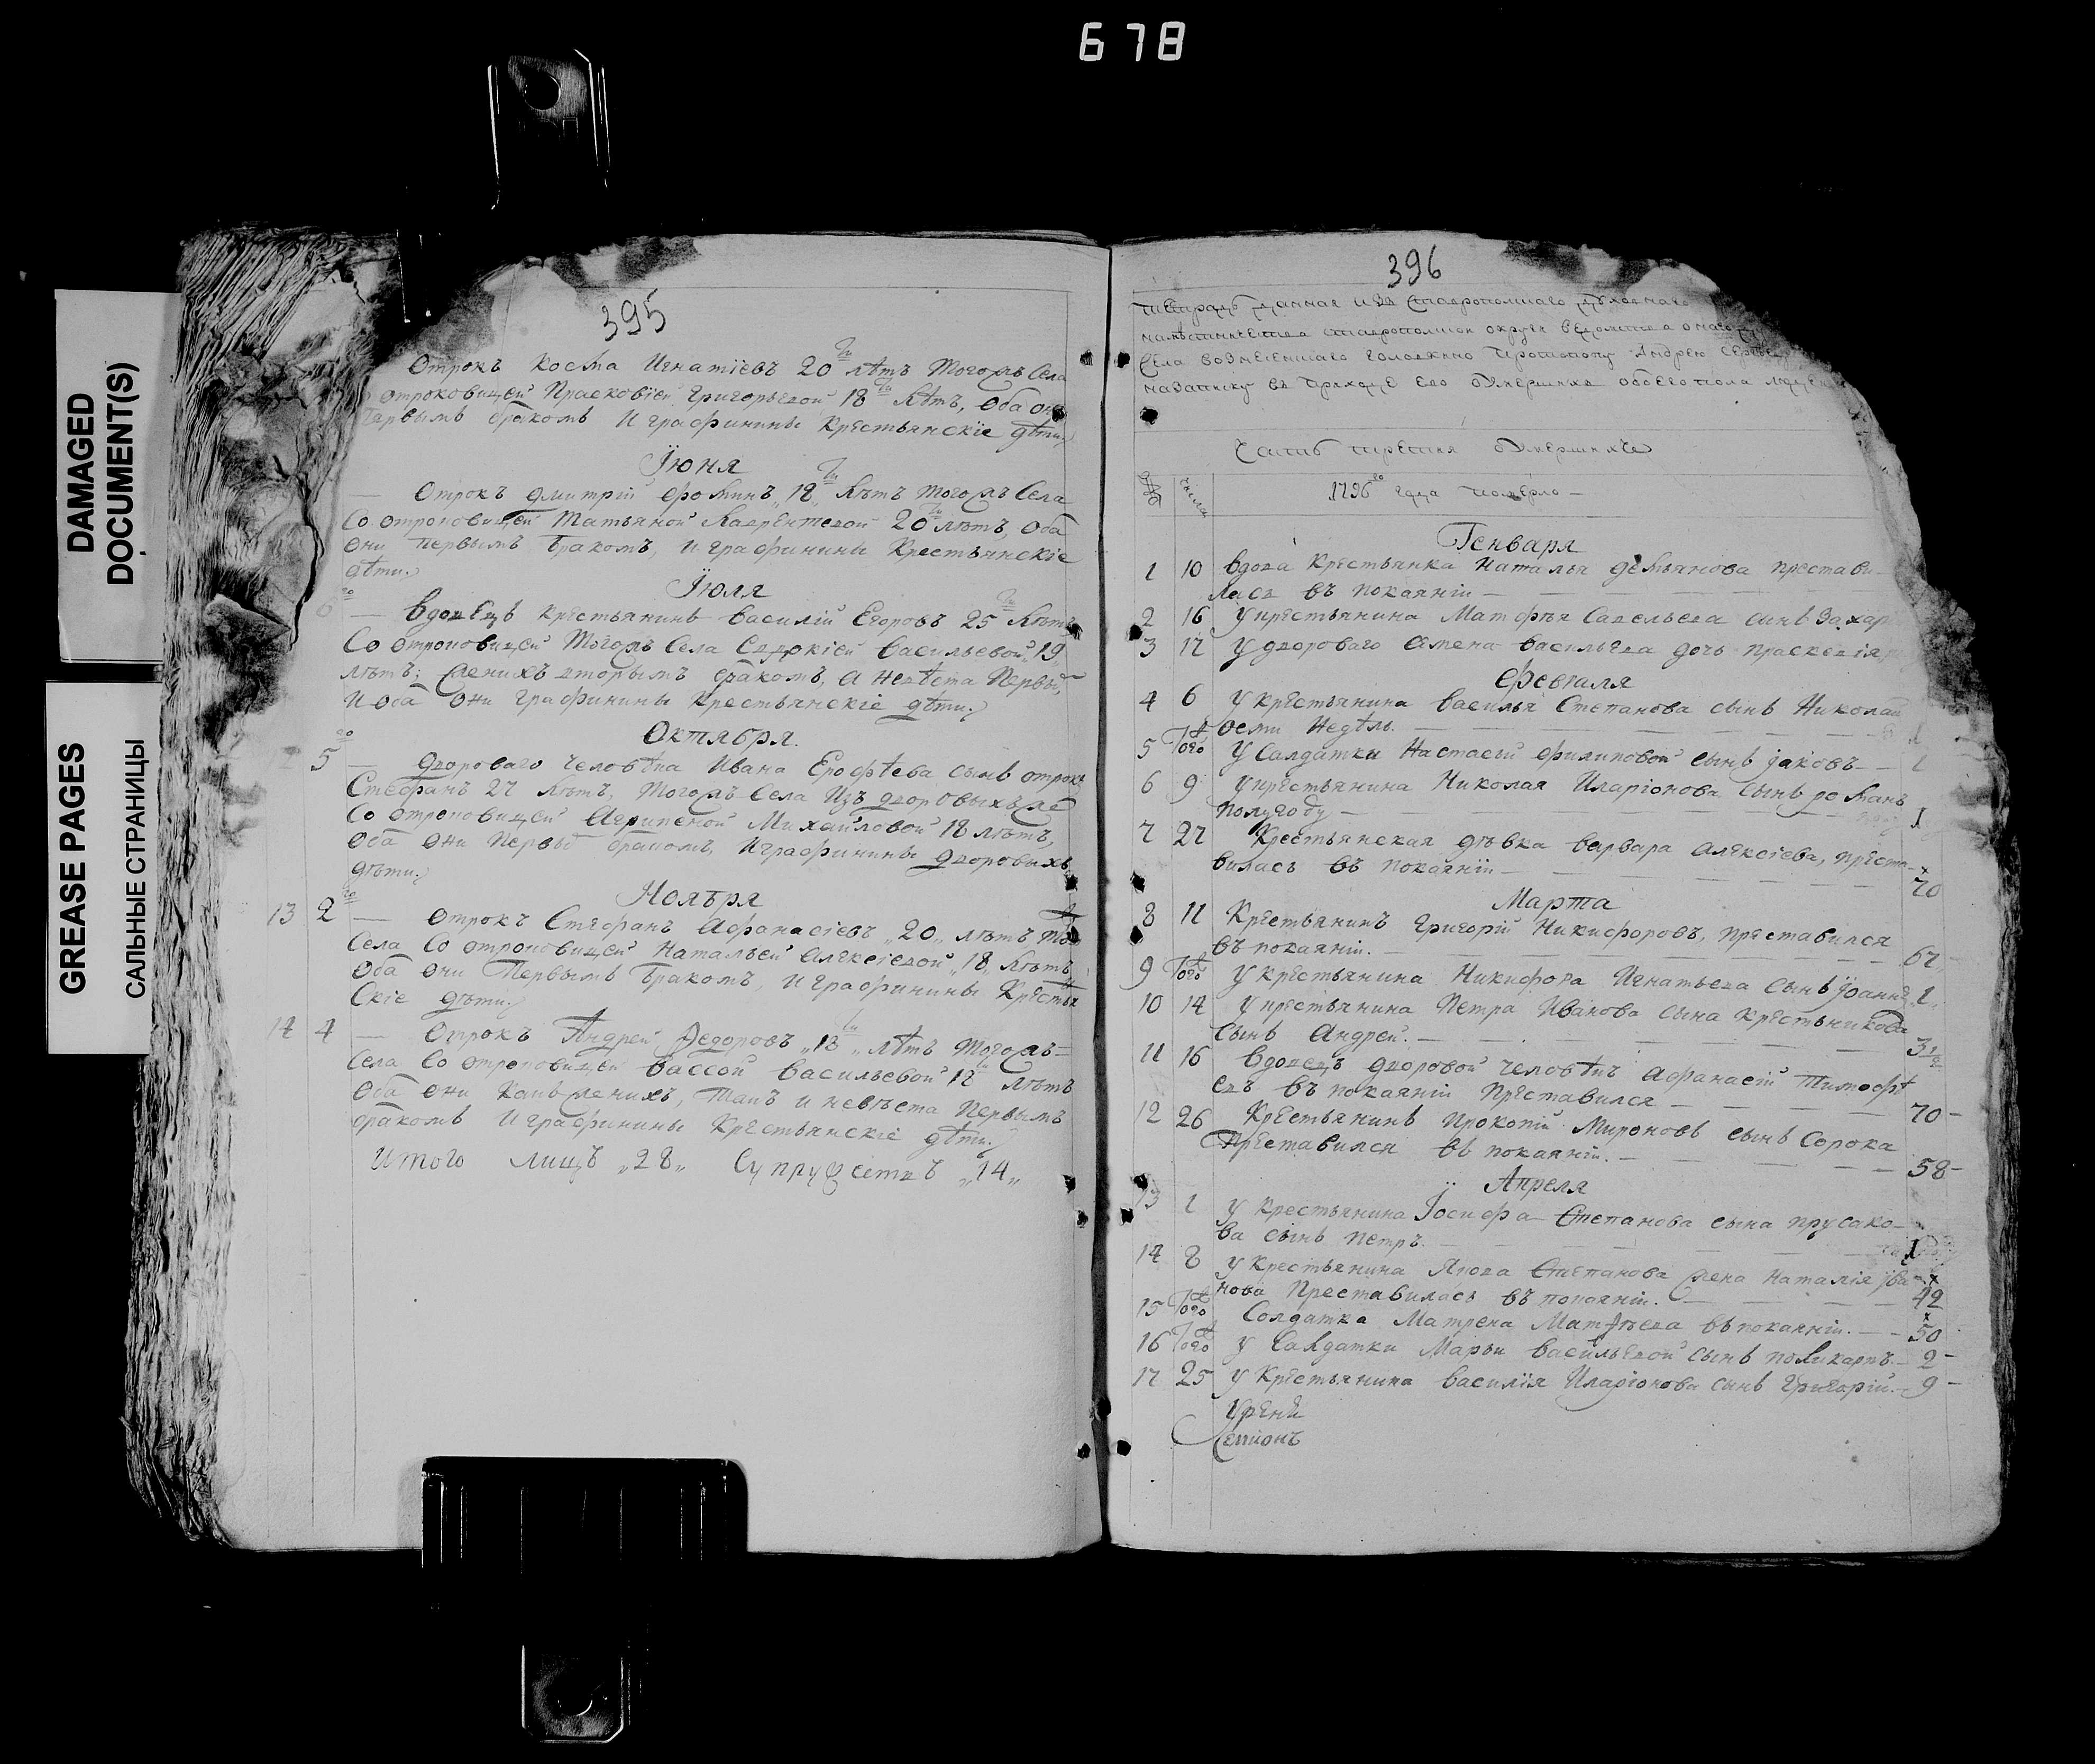 678
DAMAGED
DOCUMENT(S)
GREASE PAGES
САЛЬНЫЕ СТРАНИЦЫ
395
Отрокъ Косма Игнатіевъ 20 лѣтъ тогожъ Села
отроковицей Прасковіей Григорьевой 18 лѣтъ, оба они
первымъ бракомъ и графинины крестьянскіе дѣти
Іюня
— Отрокъ Дмитрій Фоминъ „18„ лѣтъ тогожъ Села
Со отроковицей Татьяной Лаврентевой 20 лѣтъ, оба
они первымъ бракомъ, и графинины крестьянскіе
дѣти.
Іюля
— Вдовецъ крестьянинъ Василій Егоровъ 25 лѣтъ
Со отроковицей тогожъ Села Евдокіей Васильевой „19„
лѣтъ; женихъ вторымъ бракомъ, а невѣста первы
и оба они графинины крестьянскіе дѣти.
Октября.
5 — дворового человѣка Ивана Ерофѣева сынъ отрокъ
Стефанъ 27 лѣтъ, тогожъ Села изъ дворовыхъ же
Со отроковицей Агрипеной Михайловой 18 лѣтъ,
оба они первы бракомъ, и графинины дворовыхъ
дѣти.
Ноября
13 2 — отрокъ Стефанъ Афанасіевъ „20„ лѣтъ того
Села Со отроковицей Натальей Алексіевой „18„ лѣтъ
оба они первымъ бракомъ, и графинины крестьян
скіе дѣти.
14 4 — Отрокъ Андрей Федоровъ „18„ лѣтъ тогожъ
Села Со отроковицей Вассой Васильевой 18 лѣтъ
оба они какъ женихъ, такъ и невѣста первымъ
бракомъ и графинины крестьянскіе дѣти.
Итого лицъ „28„ Супружествъ „14„
396
тетрадь данная изъ Ставрополскаго духовнаго
намѣстничества ставрополской округи ведомства онаго
Села Вознесенскаго Головкино протопопу Андрею Сергѣеву
на записку въ приходе его умершихъ обоего пола людей
Часть третия умершихъ
1796 года померло —
Генваря
1 10 вдова крестьянка Наталья Демьянова престави-
лась въ покаяніи —
2 16 у крестьянина Матфѣя Савельева сынъ Захар
3 17 у двороваго Симена Васильева дочь Праскевія
Февраля
4 6 у крестьянина Василья Степанова сынъ Николай
осми недѣль. —
5 того у Салдатки Настасьи Филиповой сынъ Іаковъ — 1
6 9 у крестьянина Николая Иларіонова сынъ Романъ
полугоду —
7 27 Крестьянская дѣвка Варвара Алексіева, преста-
вилась въ покаяніи — 70
Марта
8 11 Крестьянинъ Григорій Никифоровъ, преставился
въ покаяніи. — 67
9 того у крестьянина Никифора Игнатьева сынъ Іоаннъ 1
10 14 у крестьянина Петра Иванова сына Крестьникова
сынъ Андрей. — 3 1/2
11 16 вдовецъ дворовой человѣкъ Афанасій Тимофѣ
евъ въ покаяніи преставился — 70 —
12 26 Крестьянинъ Прокопій Мироновъ сынъ Сорока
преставился въ покаяніи. — 58 —
Апреля
13 1 у крестьянина Іосифа Степанова сына Прусако-
ва сынъ Петръ. — 1
14 8 у крестьянина Якова Степанова жена Наталія Ива-
нова преставилась въ покаяніи. — 42
15 того Солдатка Матрена Матфѣева въ покаяніи. — 50
16 того у Салдатки Марьи Васильевой сынъ Поликарпъ. — 2 —
17 25 у крестьянина Василія Иларіонова сынъ Григорій. — 9 —